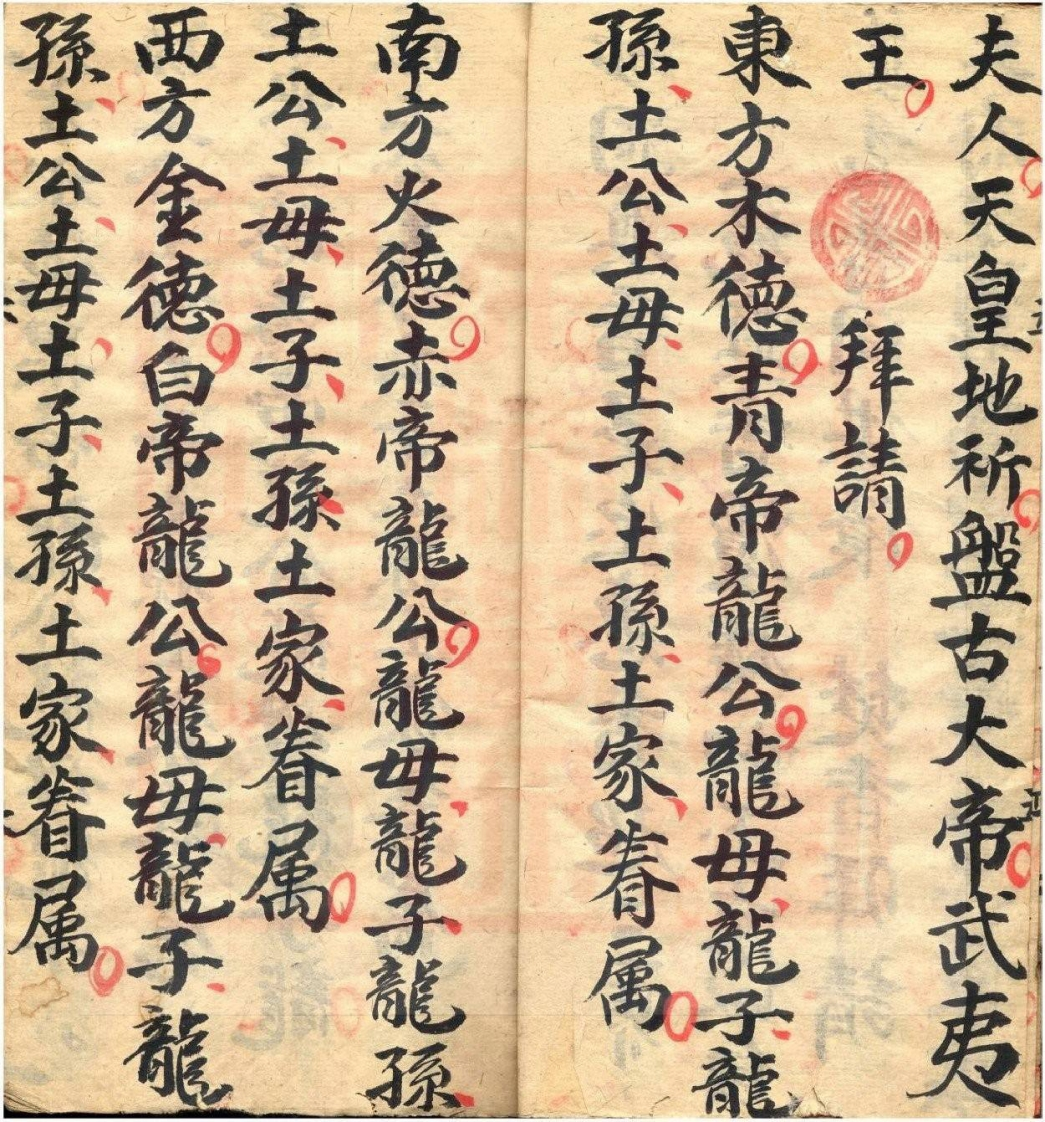 夫人天皇地祈盤古大帝武夷
王
拜請
東方木德青帝龍公龍母龍子龍
孫土公土母土子土孫土家眷属
南方火德赤帝龍公龍母龍子龍孫
土公土母土子土孫土家眷属
西方金德白帝龍公龍母龍子龍
孫土公土母土子土孫土家眷属